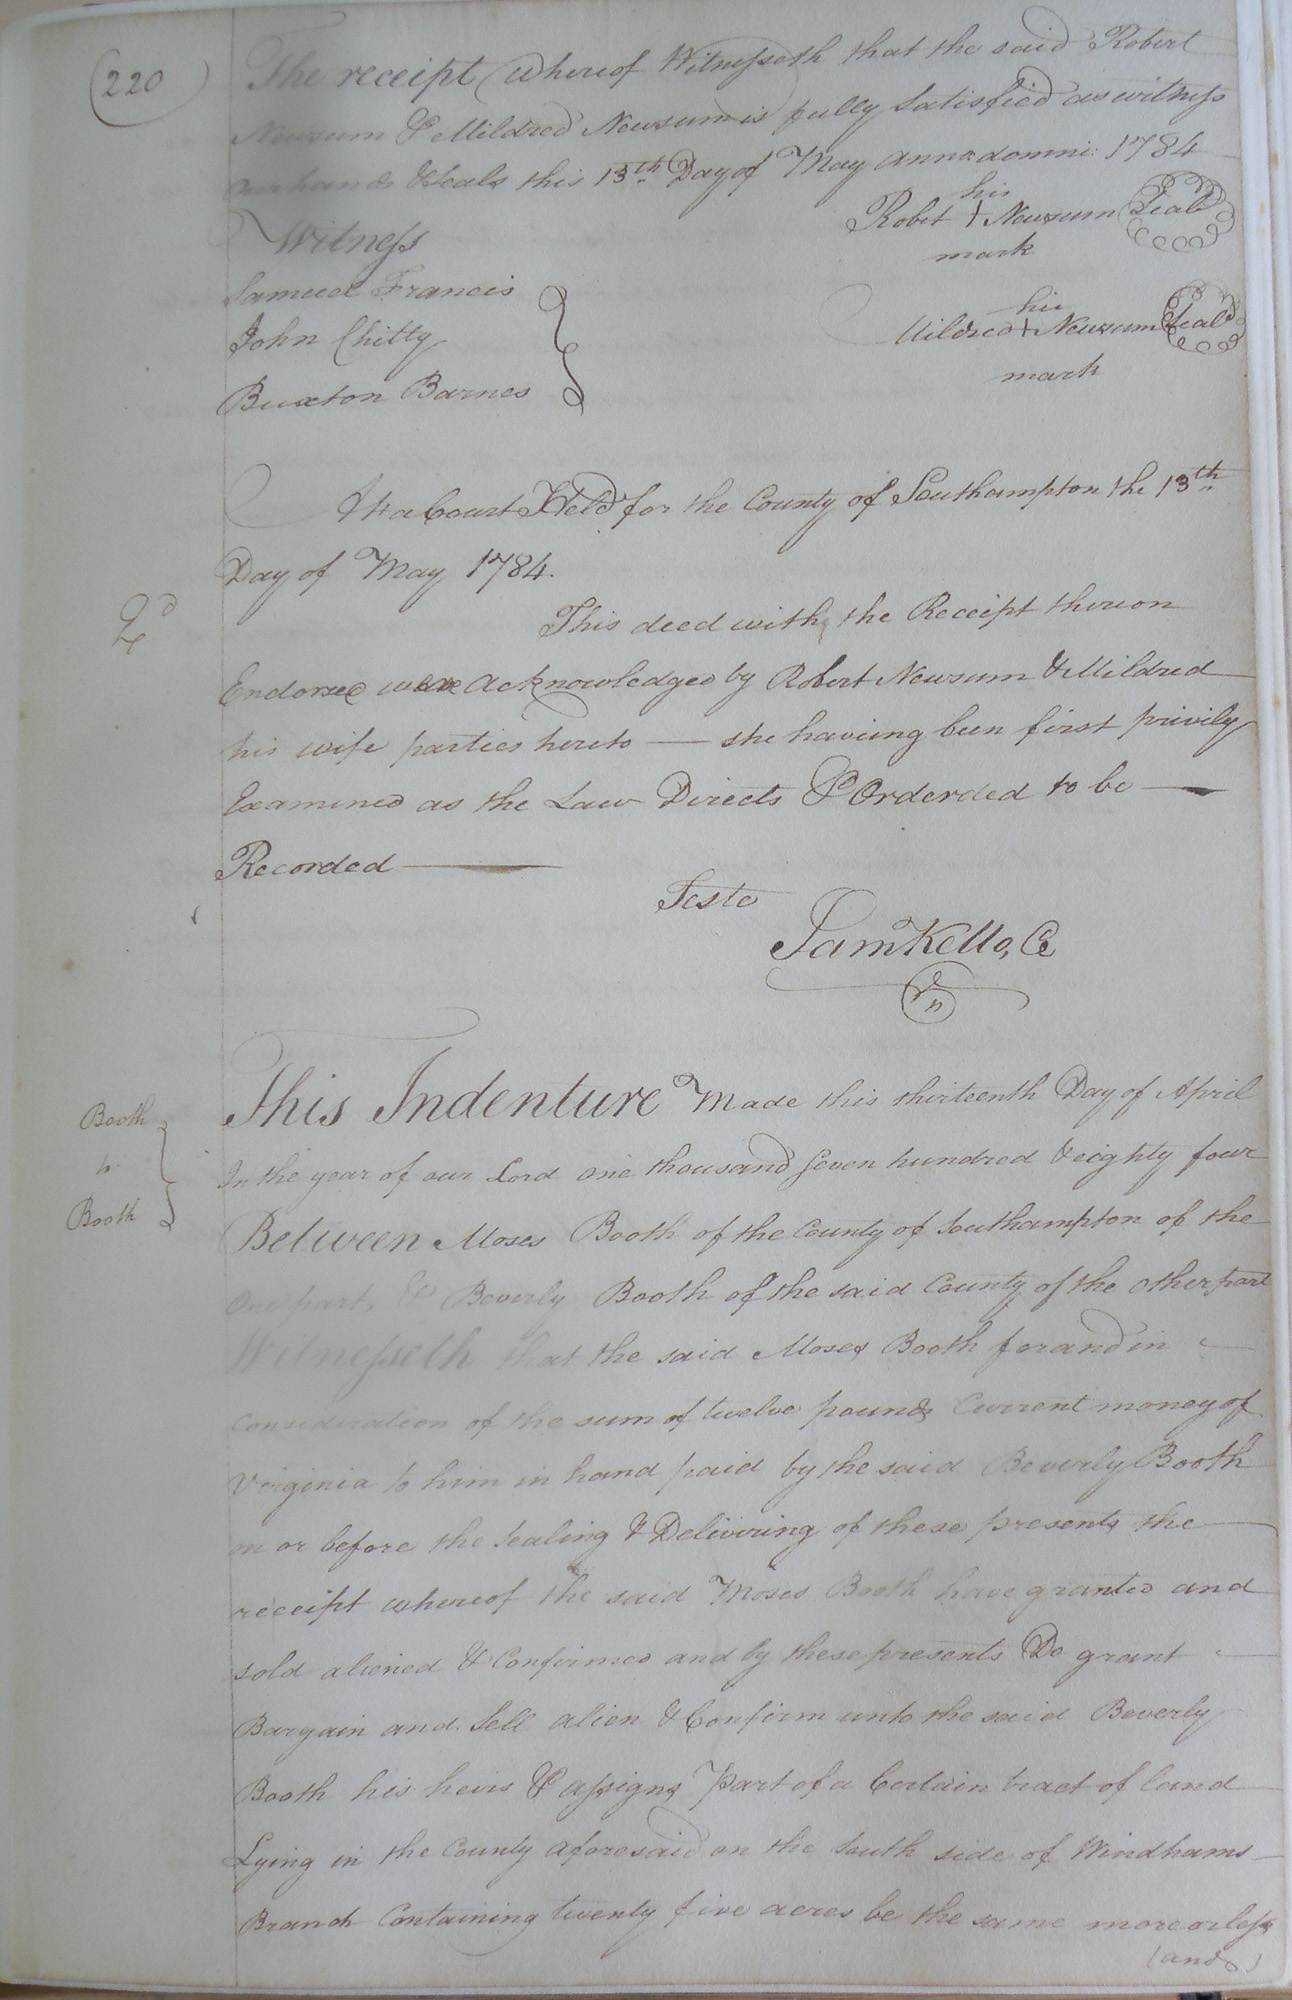 220
The receipt whereof Witnesseth that the said Robert
Newsum & Mildred Newsum is fully Satisfied as witness
our hands & Seals this 13th Day of May anno domni: 1784
his
Robet + Newsum Seal
mark
Witness
Samuel Francis
John Chitty
Buxton Barnes
his
Mildred + Newsum Seal
mark
At a Court Held for the County of Southampton the 13th
Day of May 1784.
This deed with the Receipt thereon
Endorsed were acknowledged by Robert Newsum & Mildred
his wife parties hereto — she haveing been first privily
Examined as the Law Directs & Orderded to be —
Recorded —
Teste
Sam Kello, C
This Indenture Made this thirteenth Day of April
In the year of our Lord one thousand Seven hundred & eighty four
Booth
to
Booth
Between Moses Booth of the County of Southampton of the
One part, & Beverly Booth of the said County of the other part
Witnesseth that the said Moses Booth for and in
Consideration of the sum of twelve pounds Current money of
Virginia to him in hand paid by the said Beverly Booth
on or before the Sealing & Delivering of these presents the
receipt whereof the said Moses Booth have granted and
sold aliened & Confirmed and by these presents Do grant
Bargain and Sell alien & Confirm unto the said Beverly
Booth his heirs & assigns Part of a Certain tract of land
Lying in the County aforesaid on the South side of Windhams
Branch Containing twenty five acres be the same more or less
(and)